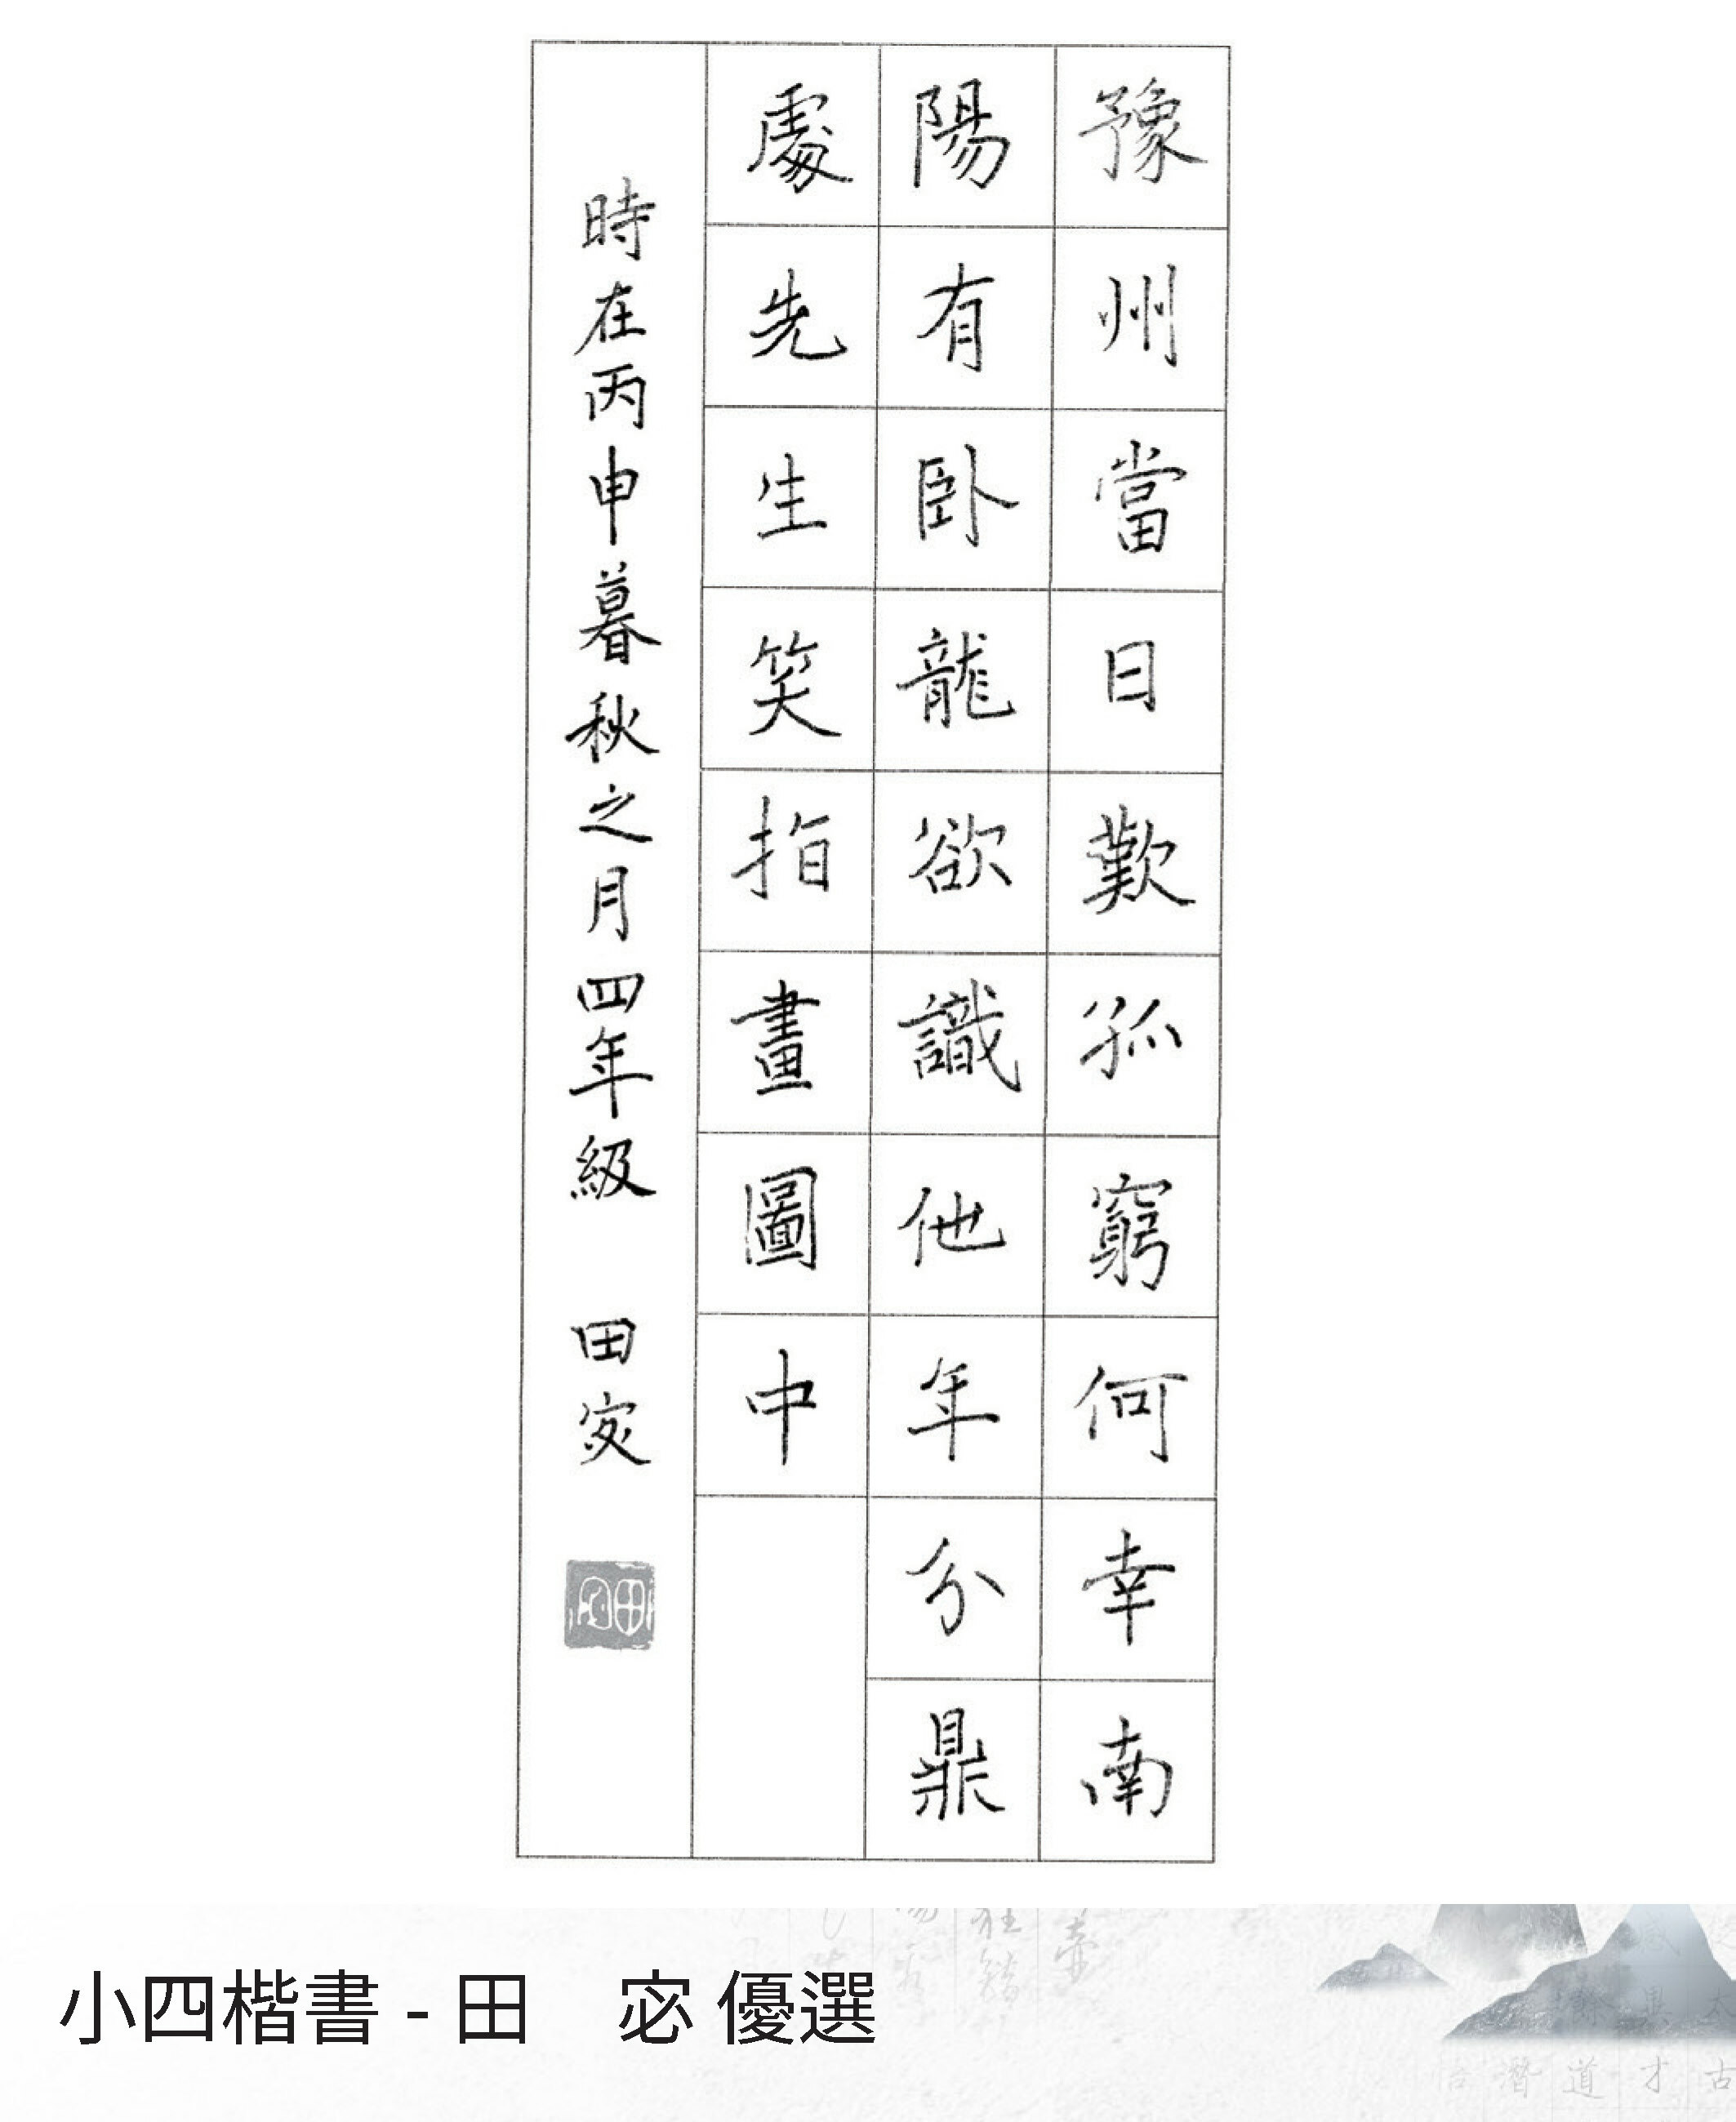 豫州當日歎孤窮何幸南
陽有卧龍欲識他年分鼎
處先生笑指畫圖中
時在丙申暮秋之月四年級 田宓
小四楷書 - 田 宓 優選